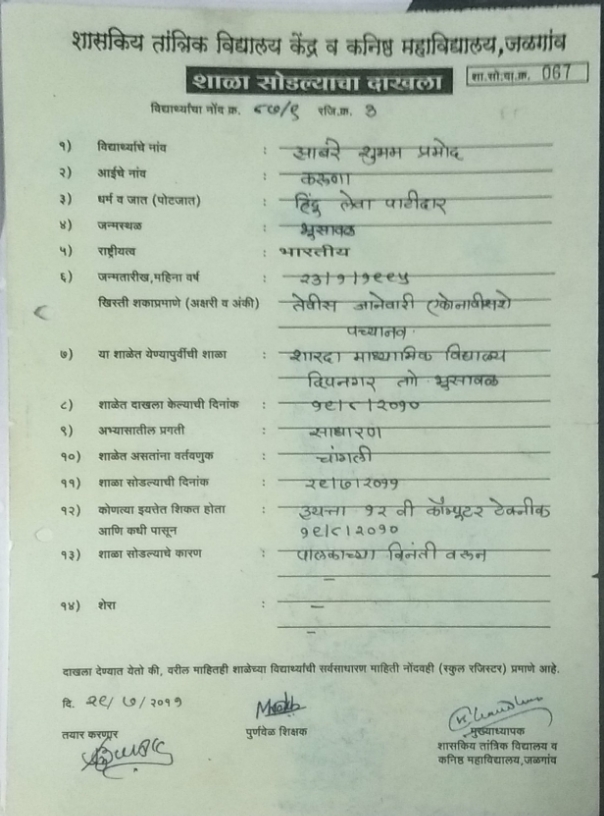 शासकिय तांत्रिक विद्यालय केंद्र व कनिष्ठ महाविद्यालय,जळगांव
शाळा सोडल्याचा दाखला शा.सो.दा.क्र. 067
विद्यार्थ्यांचा नोंद क्र. ८७/९ रजि.क्र. 3
१) विद्यार्थ्याचे नांव : आबरे शुभम प्रमोद
२) आईचे नांव : करूणा
३) धर्म व जात (पोटजात) : हिंदु लेवा पाटीदार
४) जन्मस्थळ : भुसावळ
५) राष्ट्रीयत्व : भारतीय
६) जन्मतारीख,महिना वर्ष : २३/१/१९९५
खिस्ती शकाप्रमाणे (अक्षरी व अंकी) तेवीस जानेवारी एकोनावीसशे
पच्यानव
७) या शाळेत येण्यापुर्वीची शाळा : शारदा माध्यामिक विद्यालय
दिपनगर ता भुसावळ
८) शाळेत दाखला केल्याची दिनांक : १९/८/२०१०
९) अभ्यासातील प्रगती : साधारण
१०) शाळेत असतांना वर्तवणुक : चांगली
११) शाळा सोडल्याची दिनांक : २९/७/२०११
१२) कोणत्या इयत्तेत शिकत होता : इयत्ता १२ वी कॉम्प्युटर टेक्नीक
आणि कधी पासून १९/८/२०१०
१३) शाळा सोडल्याचे कारण : पालकाच्या विनंती वरून
–
१४) शेरा : –
–
दाखला देण्यात येतो की, वरील माहितही शाळेच्या विद्यार्थ्यांची सर्वसाधारण माहिती नोंदवही (स्कुल रजिस्टर) प्रमाणे आहे.
दि. २९/७/२०११
तयार करणार पुर्णवेळ शिक्षक मुख्याध्यापक
शासकिय तांत्रिक विद्यालय व
कनिष्ठ महाविद्यालय,जळगांव